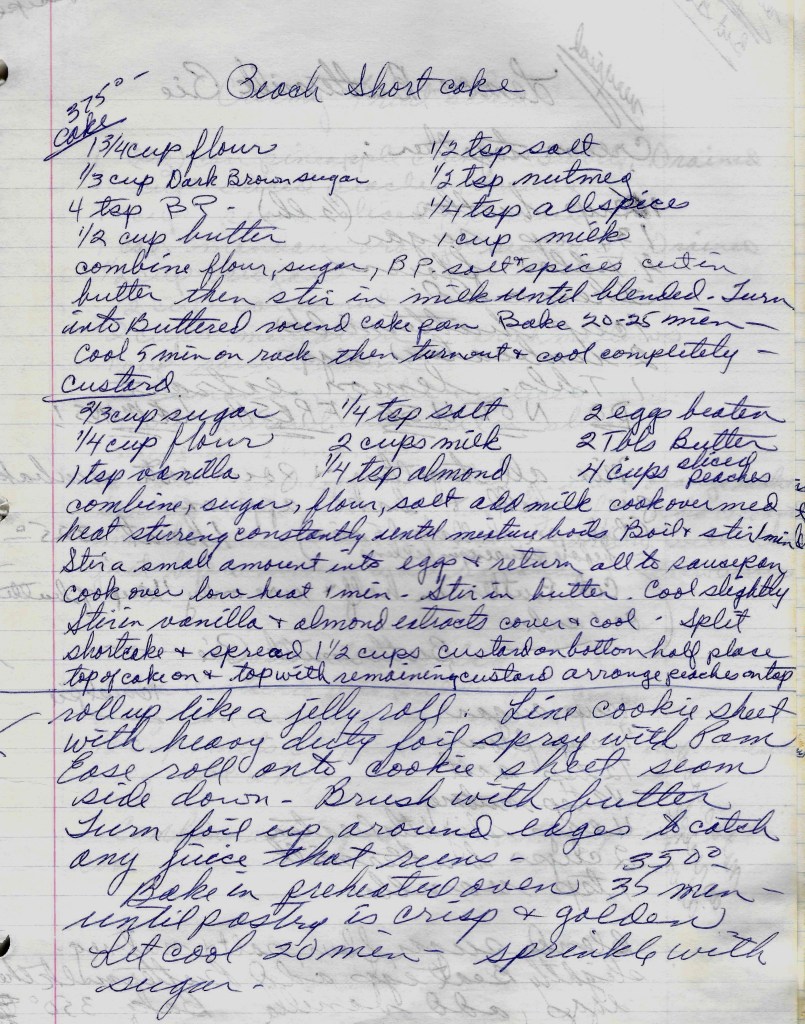 Peach Short cake
375° -
Cake
1 3/4 cup flour 1/2 tsp salt
1/3 cup Dark Brown sugar 1/2 tsp nutmeg
4 tsp B.P. - 1/4 tsp allspice
1/2 cup butter 1 cup milk
combine flour, sugar, B.P. salt + spices cut in
butter then stir in milk until blended - Turn
into Buttered round cake pan Bake 20-25 min -
Cool 5 min on rack then turnout + cool completely -
Custard
2/3 cup sugar 1/4 tsp salt 2 eggs beaten
1/4 cup flour 2 cups milk 2 Tbls Butter
1 tsp vanilla 1/4 tsp almond 4 cups sliced peaches
combine, sugar, flour, salt add milk cook over med
heat stirring constantly until mixture boils Boil + stir 1 min
Stir a small amount into eggs + return all to saucepan
cook over low heat 1 min - Stir in butter. Cool slightly
Stir in vanilla + almond extracts cover + cool - Split
shortcake + spread 1 1/2 cups custard on bottom half place
top of cake on + top with remaining custard arrange peaches on top
roll up like a jelly roll. Line cookie sheet
with heavy duty foil spray with Pam
Ease roll onto cookie sheet seam
side down - Brush with butter
Turn foil up around edges to catch
any juice that runs - 350°
Bake in preheated oven 35 min -
until pastry is crisp + golden
Let cool 20 min - sprinkle with
sugar -